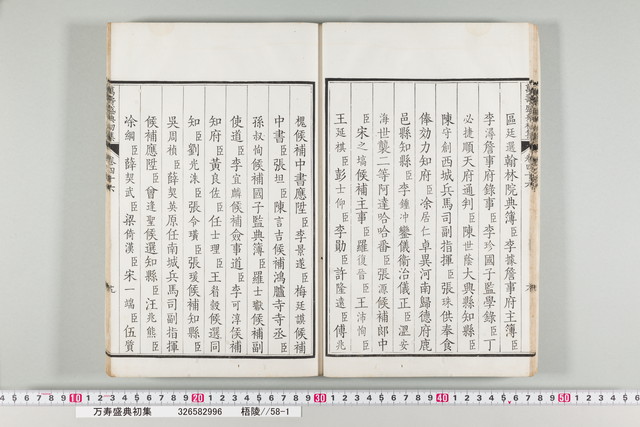 區廷選翰林院典簿臣李據詹事府主簿臣
李潯詹事府錄事臣李珍國子監學錄臣丁
必捷順天府通判臣陳世蔭大興縣知縣臣
陳守創西城兵馬司副指揮臣張珠供奉食
俸効力知府臣凃居仁卓異河南歸德府鹿
邑縣知縣臣李鍾冲鑾儀衛治儀正臣溫安
海世襲二等阿達哈哈番臣張源候補郎中
臣宋之堉候補主事臣羅復晉臣王沛恂臣
王廷棋臣彭士仰臣李勛臣許隆遠臣傅兆
萬壽盛典初集
卷四十六
九
槐候補中書應陞臣李景遂臣梅廷謨候補
中書臣張坦臣陳言吉候補鴻臚寺寺丞臣
孫叔恂候補國子監典簿臣羅士巘候補副
使道臣李宜麟候補僉事道臣李可淳候補
知府臣黃良佐臣任士理臣王者毅候選同
知臣劉光洙臣張令璜臣張瑗候補知縣臣
吳周楨臣薛契英原任南城兵馬司副指揮
候補應陞臣曾逢聖候選知縣臣汪兆熊臣
凃綱臣薛契武臣梁猗漢臣宋一端臣伍質
万寿盛典初集 326582996 梧陵//58-1